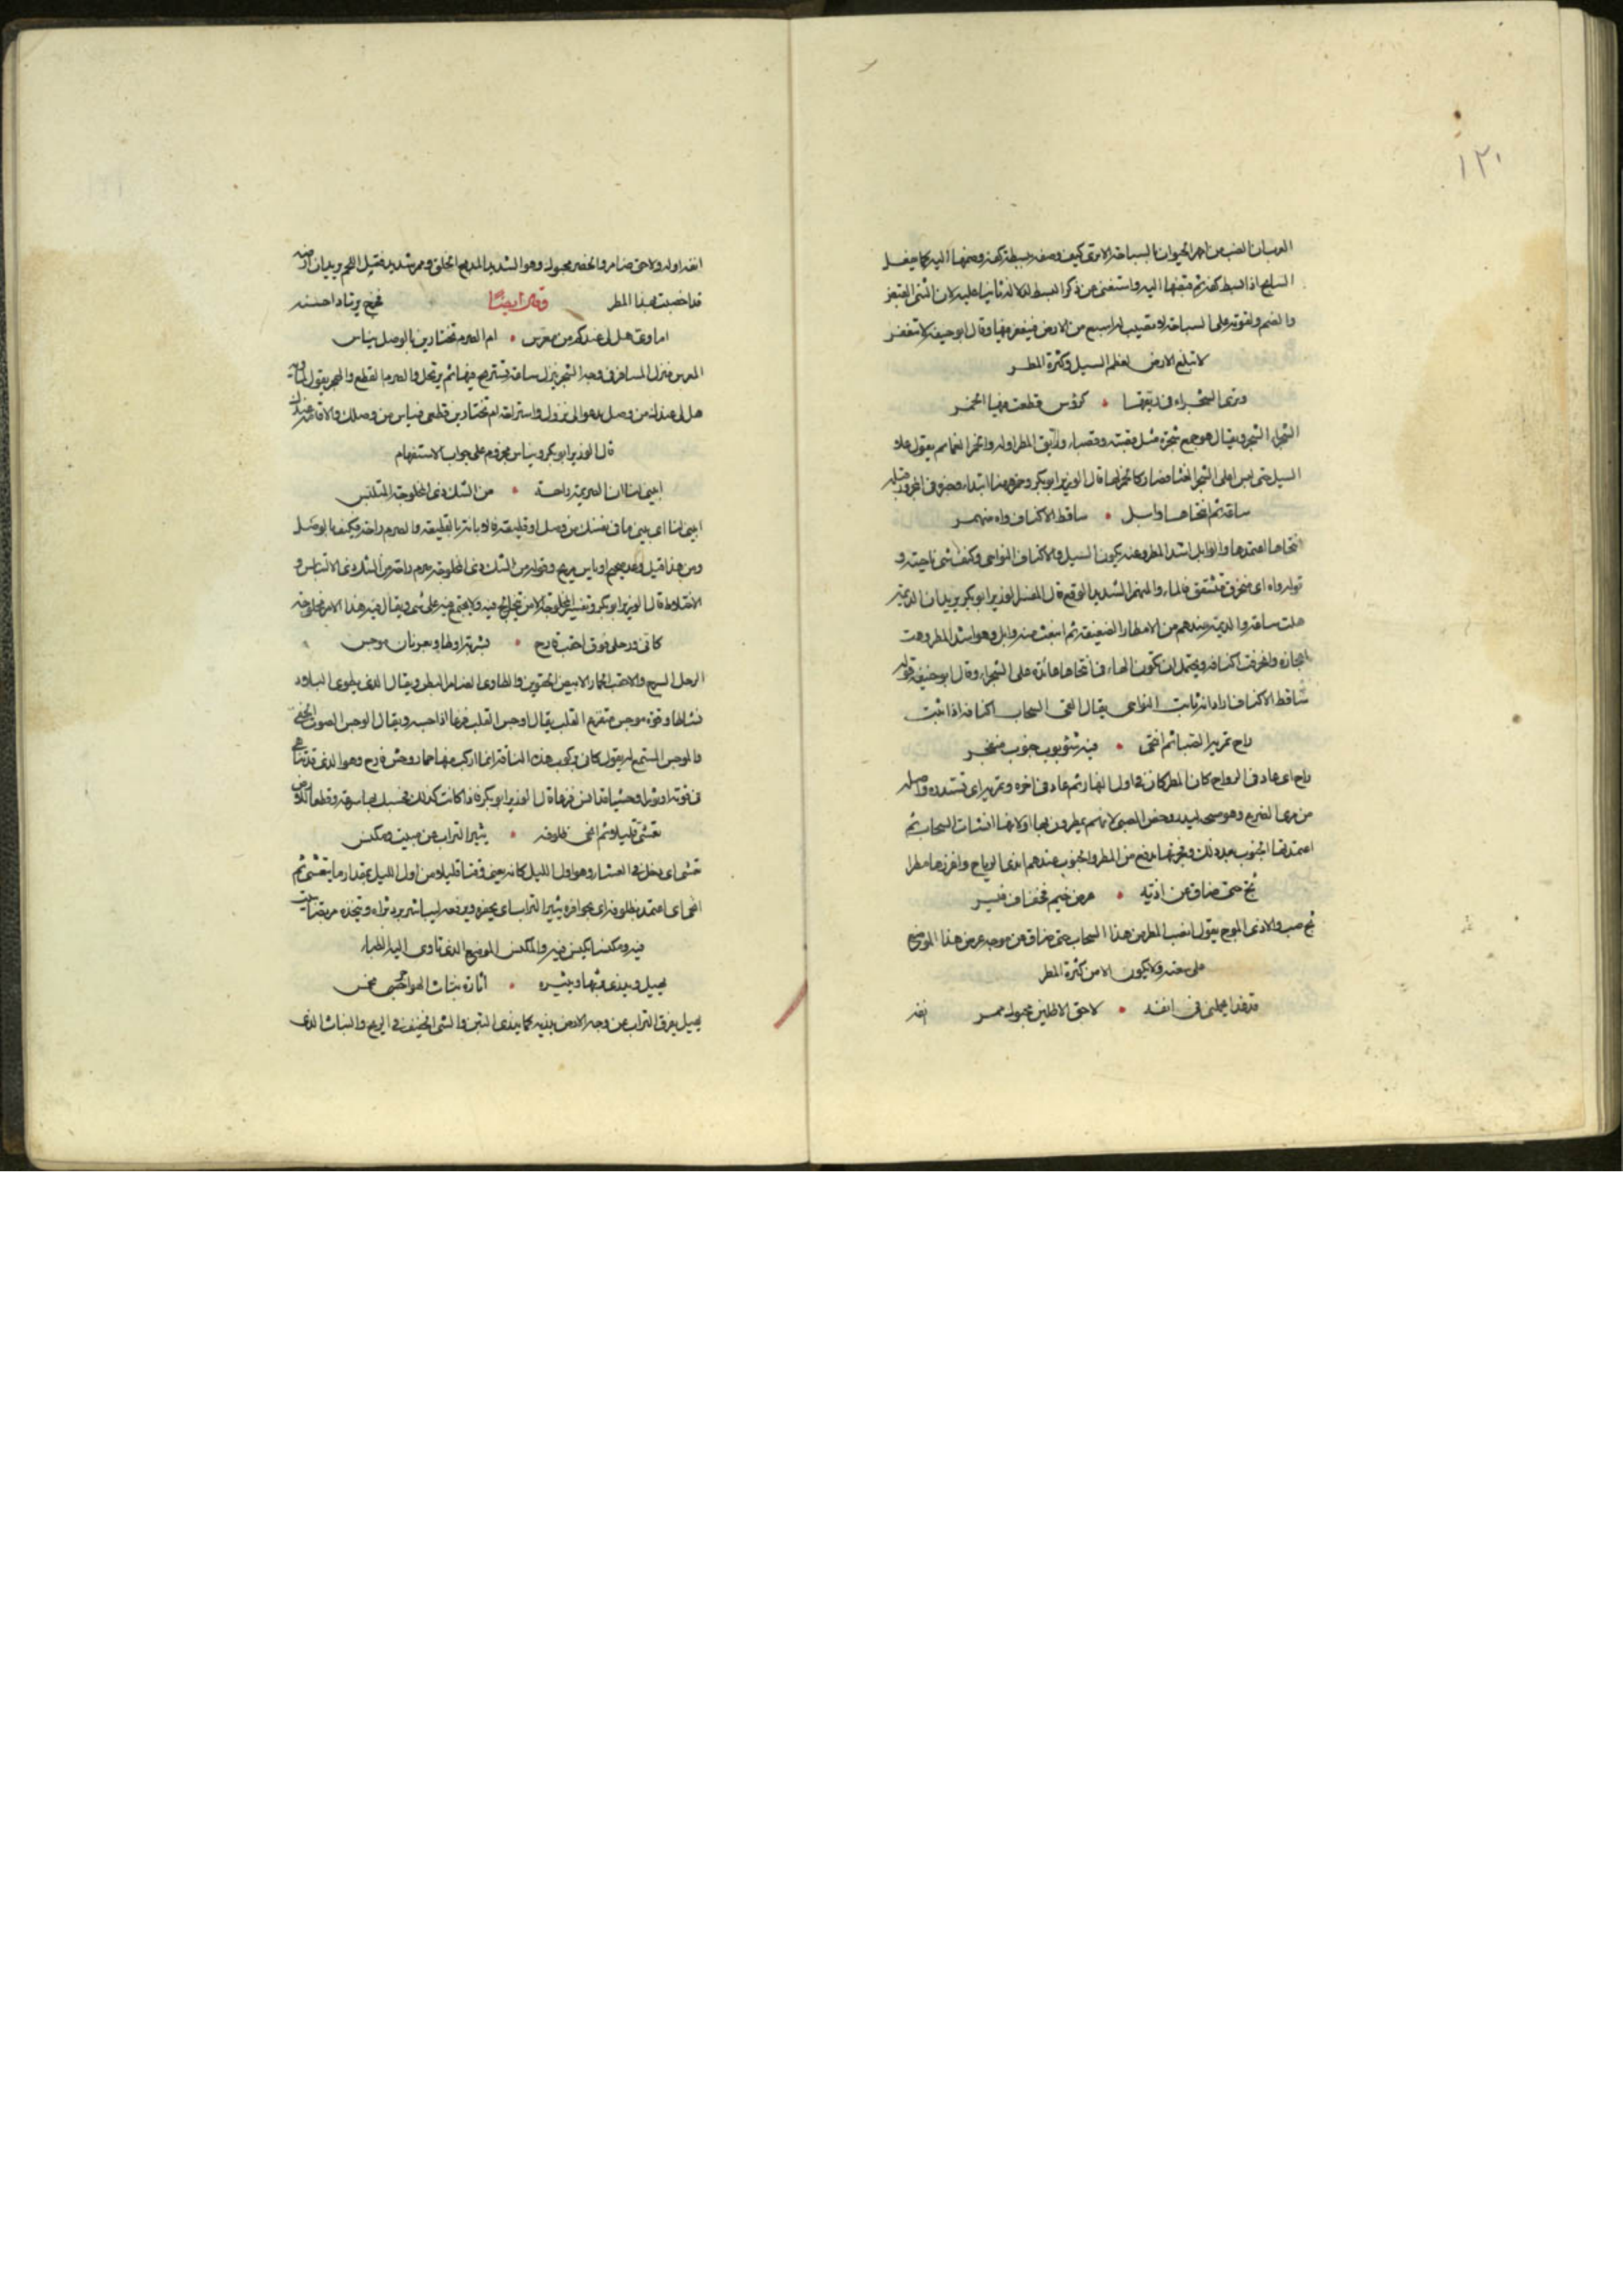 ١٢٠
العرب ان الضب من امهر الحيوان بالسباحة الا ترى كيف وصفه ببسط كفه وضمها اليه كما يفعل
السابح اذا بسط كفه ثم قبضها اليه واستغنى عن ذكر البسط لدلالة ثانيا عليه لان الثنى القبض
والضم ولقوته على السباحة لا يصيب براسبع من الارض فينعفر فيها وقال ابو حنيفة لا تنعفر
لا تبلغ الارض لعظم السيل وكثرة المطر
وترى الشجراء في ريقها • كرؤس قطعت فيها الخمر
الشجراء الشجر ويقال هو جمع شجرة مثل قصبة وقصباء وريق المطر اوله والخمر العمائم يقول علا
السيل حتى لبس اعلى الشجر الغثاء فصار كالخمر لها قال الوزير ابو بكر
ساعة ثم انتحاها وابل • ساقط الاكناف واه منهمر
انتحاها اعتمدها والوابل اشد المطر وعنه يكون السيل والاكناف النواحي وكنف الشى ناحيته و
قوله واه اى منخرق متشقق بالماء والمنهمر الشديد الوقع قال المفسر الوزير ابو بكر يريد ان الديمة
هطلت ساعة والديمة عندهم من الامطار الضعيفة ثم انبعث منه وابل وهو اشد المطر وهت
اعجازه وانخرقت اكنافه ويحتمل ان تكون الهاء في انتحاها عائدة على الشجراء وقال ابو حنيفة قوله
ساقط الاكناف اراد انه ثابت النواحي يقال القى السحاب اكنافه اذا ثبت
راح تمريه الصبا ثم انتحى • فيه شؤبوب جنوب منفجر
راح اى عاد في الرواح كان المطر كان في اول النهار ثم عاد في اخره وتمريه اى تستدره واصله
من مرى الضرع وهو مسحه ليدر وخص الصبا لانهم يمطرون بها او لانها انشأت السحاب ثم
اعتمدتها الجنوب بعد ذلك وفجرتها بدفع من المطر والجنوب عندهم اندى الرياح واغزرها مطرا
ثج حتى ضاق عن اذيه • عرض خيم فخفاف فيسر
ثج صب والاذى الموج يقول انصب المطر من هذا السحاب حتى ضاق عن موجه عرض هذا الموضع
على سعته ولا يكون الا من كثرة المطر
قد غدا يحملنى في انفه • لاحق الاطلين محبوك ممر
انفه
انفه اوله ولاحق ضامر والخصر محبوك وهو الشديد المدمج الخلق وممر شديد فتل اللحم يريد ان ارضه
قد اخصبت بهذا المطر فخرج يرتاد احسنه
وقال ايضا
اماوى هل لى عندكم من معرس • ام الصرم تختارين بالوصل نيأس
المعرس منزل المسافر في وجه السحر ينزل ساعة يستريح فيها ثم يرتحل والصرم القطع والهجر يقول
هل لى عندك من وصل يدعو الى نزول واستراحة ام تختارين قطعى فنيأس من وصلك
قال الوزير ابو بكر ونيأس مجزوم على جواب الاستفهام
ابينى لنا ان الصريمة راحة • من الشك ذى المخلوجة المتلبس
ابينى لنا اى بينى ما في نفسك من وصل او قطيعة والصرم راحة فكيف بالوصل
ومن هذا قيل وعد صحيح او ياس مريح وقوله من الشك ذى المخلوجة صرم راحة من الشك ذى الالتباس و
الاختلاط قال الوزير ابو بكر وتفسير المخلوجة الامر يختلج فيه ولا يجتمع فيه على شى ويقال فيه هذا الامر مخلوجة
كانى ورحلى فوق احقب قارح • بشربة او طاو بعرنان موجس
الرحل السرج والاحقب الحمار الابيض الحقوين والطاوى الضامر البطن ويقال الذى يطوى البلاد
نشاطا وقوة موجس متفزع القلب يقال اوجس القلب فزعا اذا احس ويقال الوجس الصوت الخفى
والموجس المستمع له يقول كانى بركوب هذه الناقة انما اركب منها حمار وحش قارح وهو الذى قد تناهى
في قوته او ثورا وحشيا قال الوزير ابو بكر فاذا كانت كذلك فحسبك بها سرعة وقطعا للارض
تعشى قليلا ثم انحى ظلوفه • يثير التراب عن مبيت ومكنس
تعشى اى دخل في العشاء وهو اول الليل كانه رعى وقتا قليلا من اول الليل بمقدار ما يتعشى ثم
انحى اى اعتمد بظلوفه اى بحوافره يثير التراب اى يحفره ويرفعه ليباشر برد ثراه ويتخذه مربضا يبيت
فيه ومكنسا يكنس فيه والمكنس الموضع الذى تاوى اليه الظباء
يهيل ويذرى تربها ويثيره • اثارة نباث الهواجر مخمس
يهيل يفرق التراب عن وجه الارض يذريه كما يذرى التبن والشى الخفيف في الريح والنباث الذى